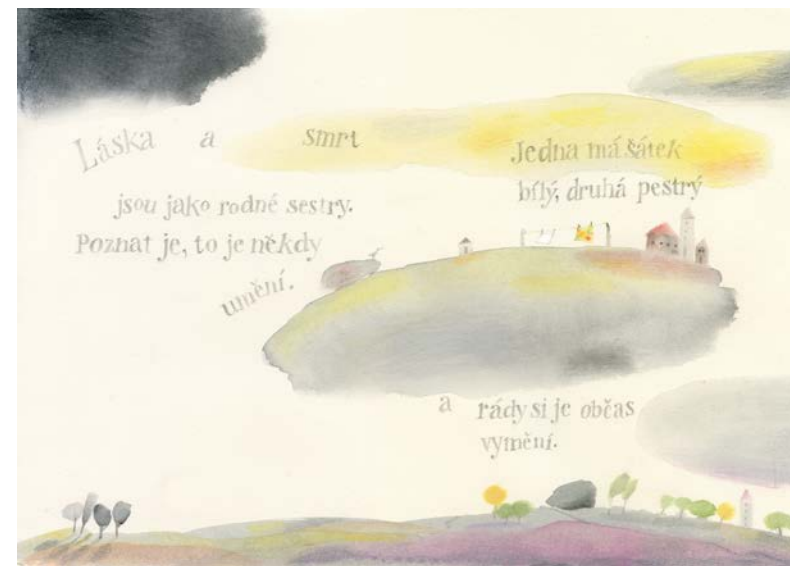 Láska a smrt
jsou jako rodné sestry.
Poznat je, to je někdy
umění.
Jedna má šátek
bílý, druhá pestrý
a rády si je občas
vymění.